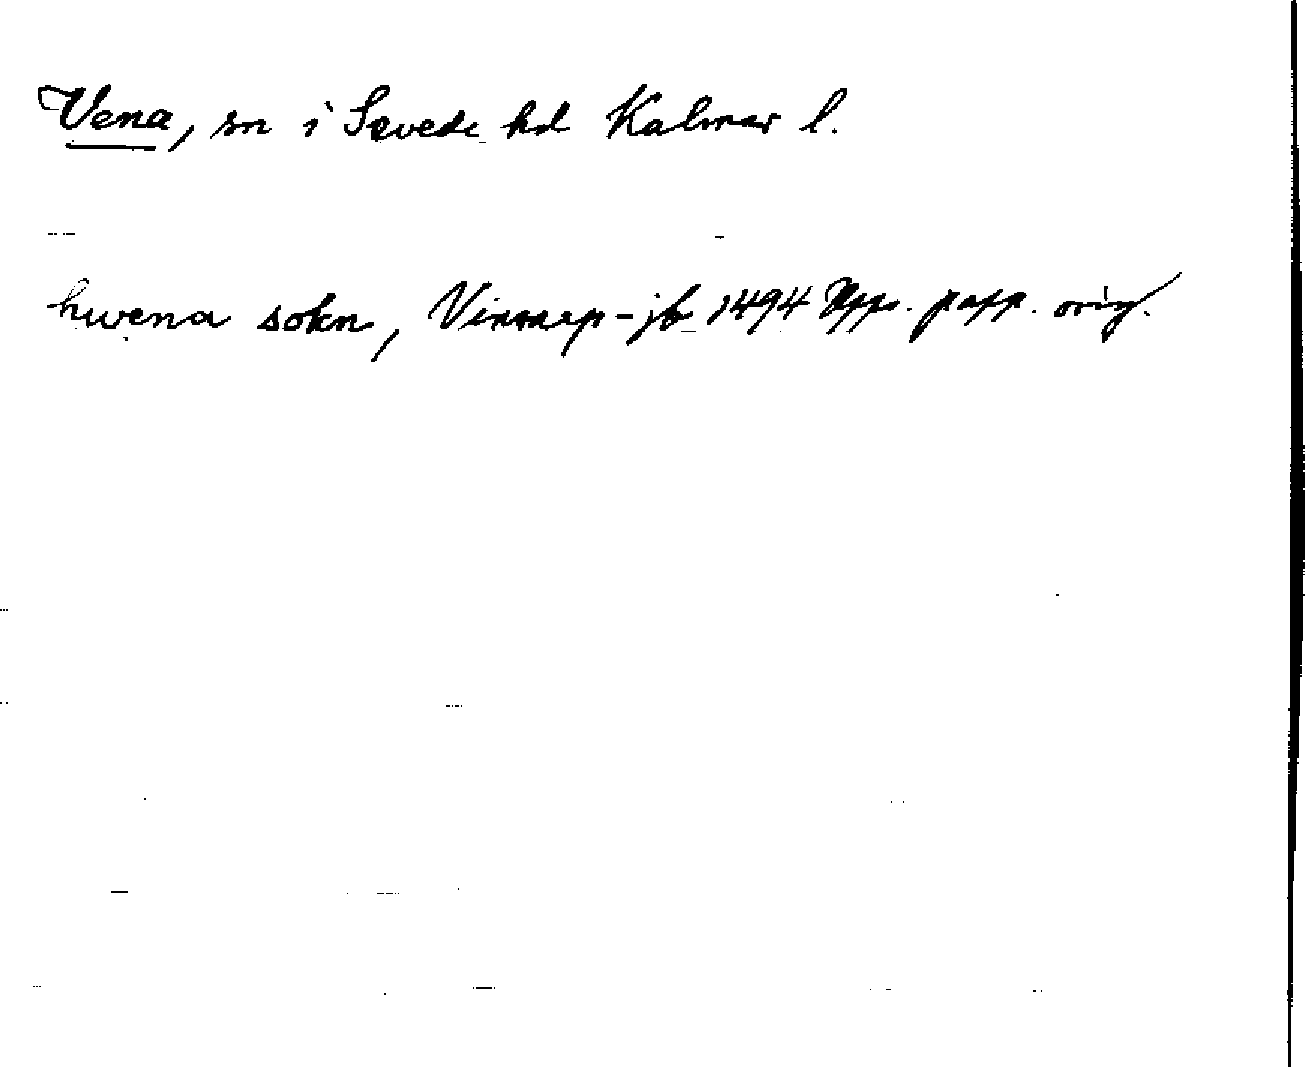 Vena, sn i Sevede hd Kalmar l.
hwena sokn, Vinnerp-jb 1494 Upps. papp. orig.